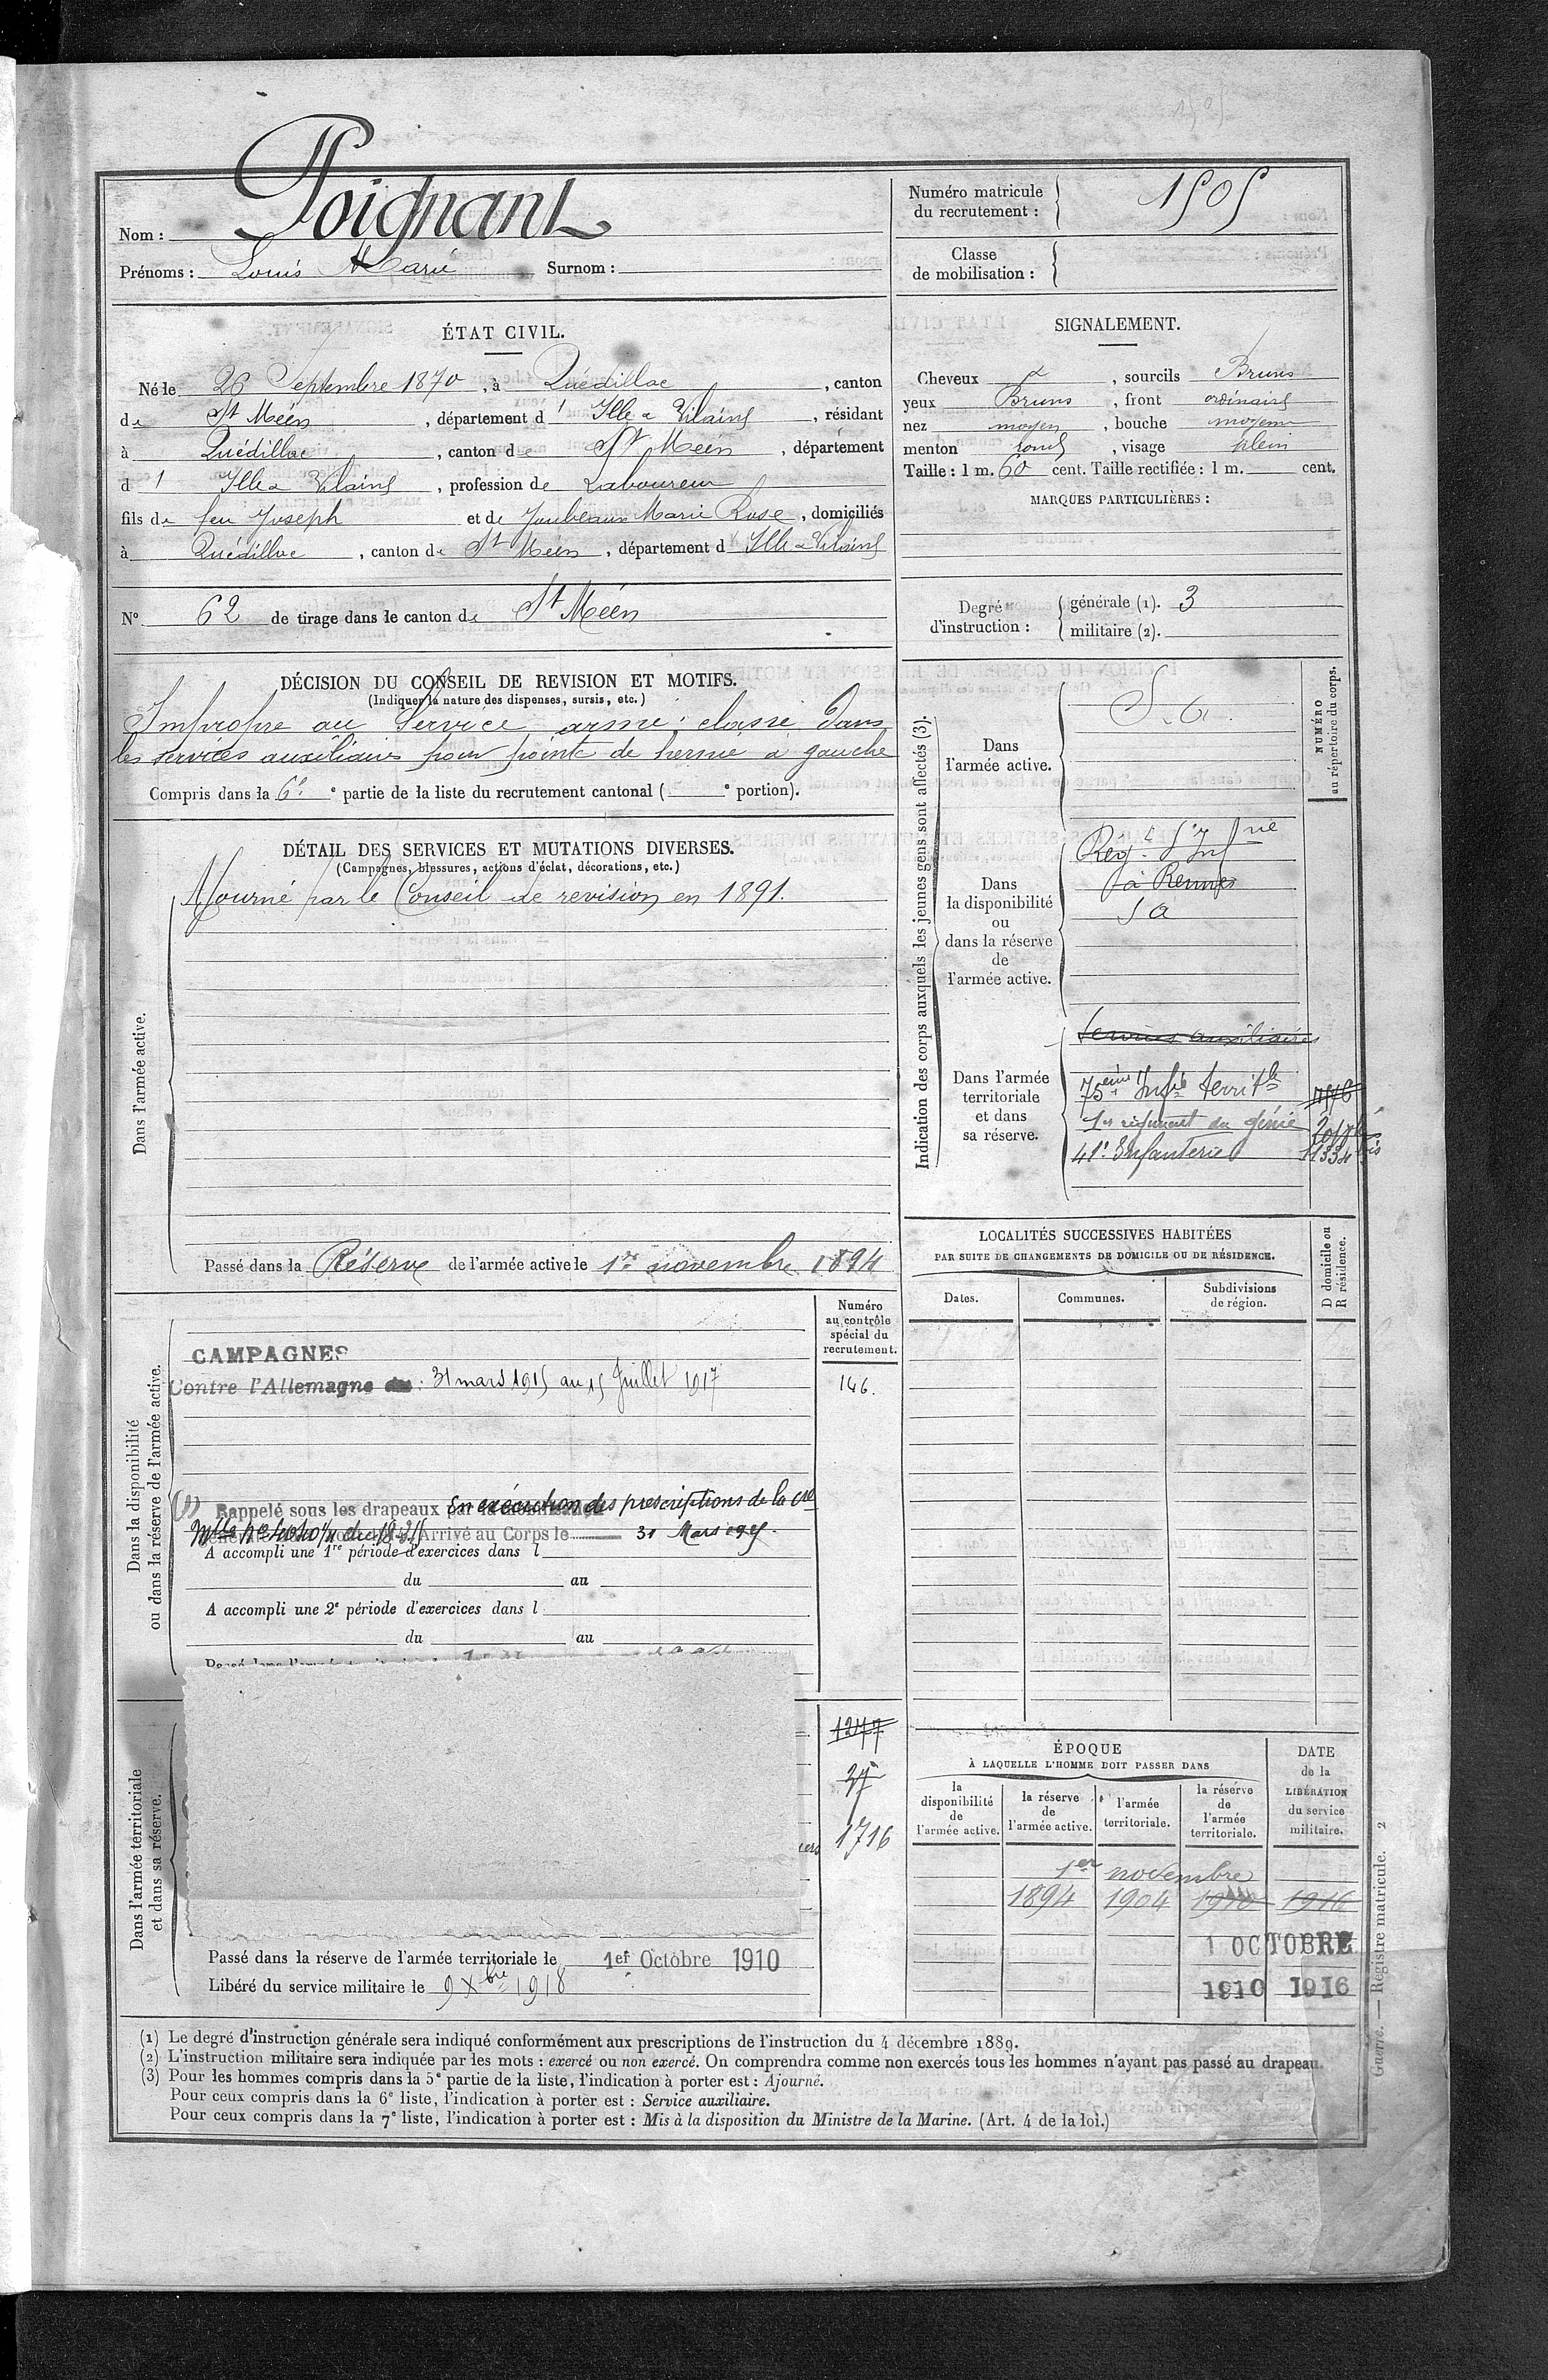 1505
Nom : Poignant
Prénoms : Louis Marie Surnom :
Numéro matricule
du recrutement : 1505
Classe
de mobilisation :
ÉTAT CIVIL.
Né le 26 Septembre 1870, à Quédillac, canton
de St Méen, département d'Ille & Vilaine, résidant
à Quédillac, canton de St Méen, département
d'Ille & Vilaine, profession de Laboureur
fils de feu Joseph et de Joubeaux Marie Rose, domiciliés
à Quédillac, canton de St Méen, département d Ille & Vilaine
N° 62 de tirage dans le canton de St Méen
SIGNALEMENT.
Cheveux &, sourcils Bruns
yeux Bruns, front ordinaire
nez moyen, bouche moyenne
menton rond, visage plein
Taille : 1 m. 60 cent. Taille rectifiée : 1 m. cent.
MARQUES PARTICULIÈRES :
Degré
d'instruction :
générale (1). 3
militaire (2).
DÉCISION DU CONSEIL DE REVISION ET MOTIFS.
(Indiquer la nature des dispenses, sursis, etc.)
Impropre au Service armé ; classé dans
les services auxiliaires pour pointe de hernie à gauche
Compris dans la 6e e partie de la liste du recrutement cantonal ( e portion).
DÉTAIL DES SERVICES ET MUTATIONS DIVERSES.
(Campagnes, blessures, actions d'éclat, décorations, etc.)
Dans l'armée active.
Ajourné par le Conseil de revision en 1891.
Passé dans la Réserve de l'armée active le 1er novembre 1894
Indication des corps auxquels les jeunes gens sont affectés (3).
NUMÉRO
au répertoire du corps.
Dans
l'armée active.
S. A.
Dans
la disponibilité
ou
dans la réserve
de
l'armée active.
à Rennes
S A
Dans l'armée
territoriale
et dans
sa réserve.
Services auxiliaires
75ème Infie territle
1er régiment du génie
41e Infanterie
LOCALITÉS SUCCESSIVES HABITÉES
PAR SUITE DE CHANGEMENTS DE DOMICILE OU DE RÉSIDENCE.
Dates.
Communes.
Subdivisions
de région.
D domicile ou
R résidence.
Dans la disponibilité
ou dans la réserve de l'armée active.
Numéro
au contrôle
spécial du
recrutement.
146.
CAMPAGNES
Contre l'Allemagne du : 31 mars 1915 au 15 Juillet 1917
(1) Rappelé sous les drapeaux En exécution des prescriptions de la cre
Arrivé au Corps le 31 Mars 1915.
A accompli une 1re période d'exercices dans l
du au
A accompli une 2e période d'exercices dans l
du au
Dans l'armée territoriale
et dans sa réserve.
1277
37
1716
Passé dans la réserve de l'armée territoriale le 1er Octobre 1910
Libéré du service militaire le 9 Xbre 1918
ÉPOQUE
À LAQUELLE L'HOMME DOIT PASSER DANS
la
disponibilité
de
l'armée active.
la réserve
de
l'armée active.
l'armée
territoriale.
la réserve
de
l'armée
territoriale.
DATE
de la
LIBÉRATION
du service
militaire.
1er novembre
1894 1904 1910 1916
1 OCTOBRE
1910 1916
Guerre. — Registre matricule. 2
(1) Le degré d'instruction générale sera indiqué conformément aux prescriptions de l'instruction du 4 décembre 1889.
(2) L'instruction militaire sera indiquée par les mots : exercé ou non exercé. On comprendra comme non exercés tous les hommes n'ayant pas passé au drapeau.
(3) Pour les hommes compris dans la 5e partie de la liste, l'indication à porter est : Ajourné.
Pour ceux compris dans la 6e liste, l'indication à porter est : Service auxiliaire.
Pour ceux compris dans la 7e liste, l'indication à porter est : Mis à la disposition du Ministre de la Marine. (Art. 4 de la loi.)